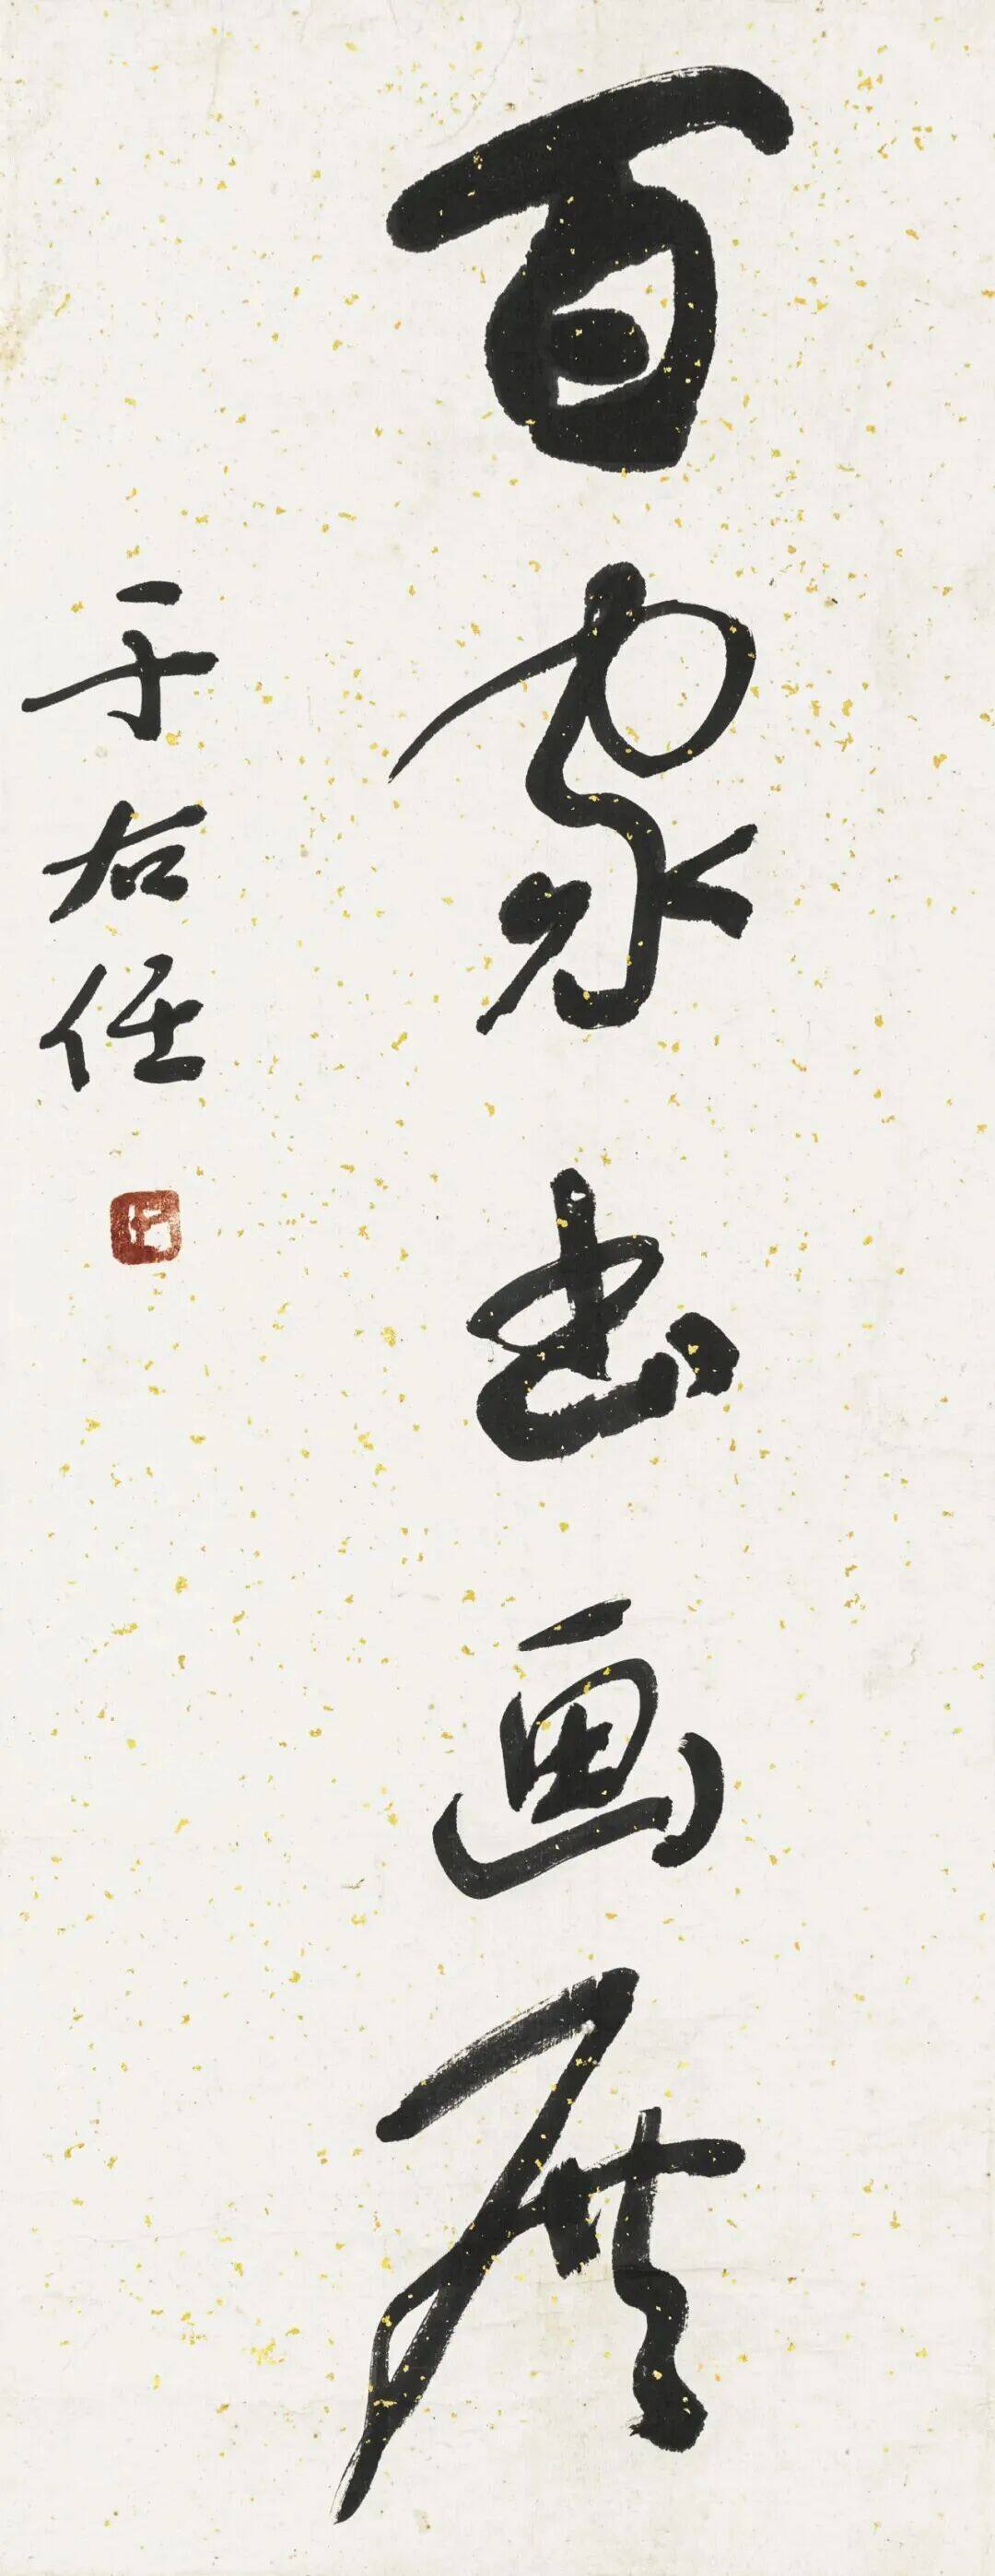 百家书画展
于右任